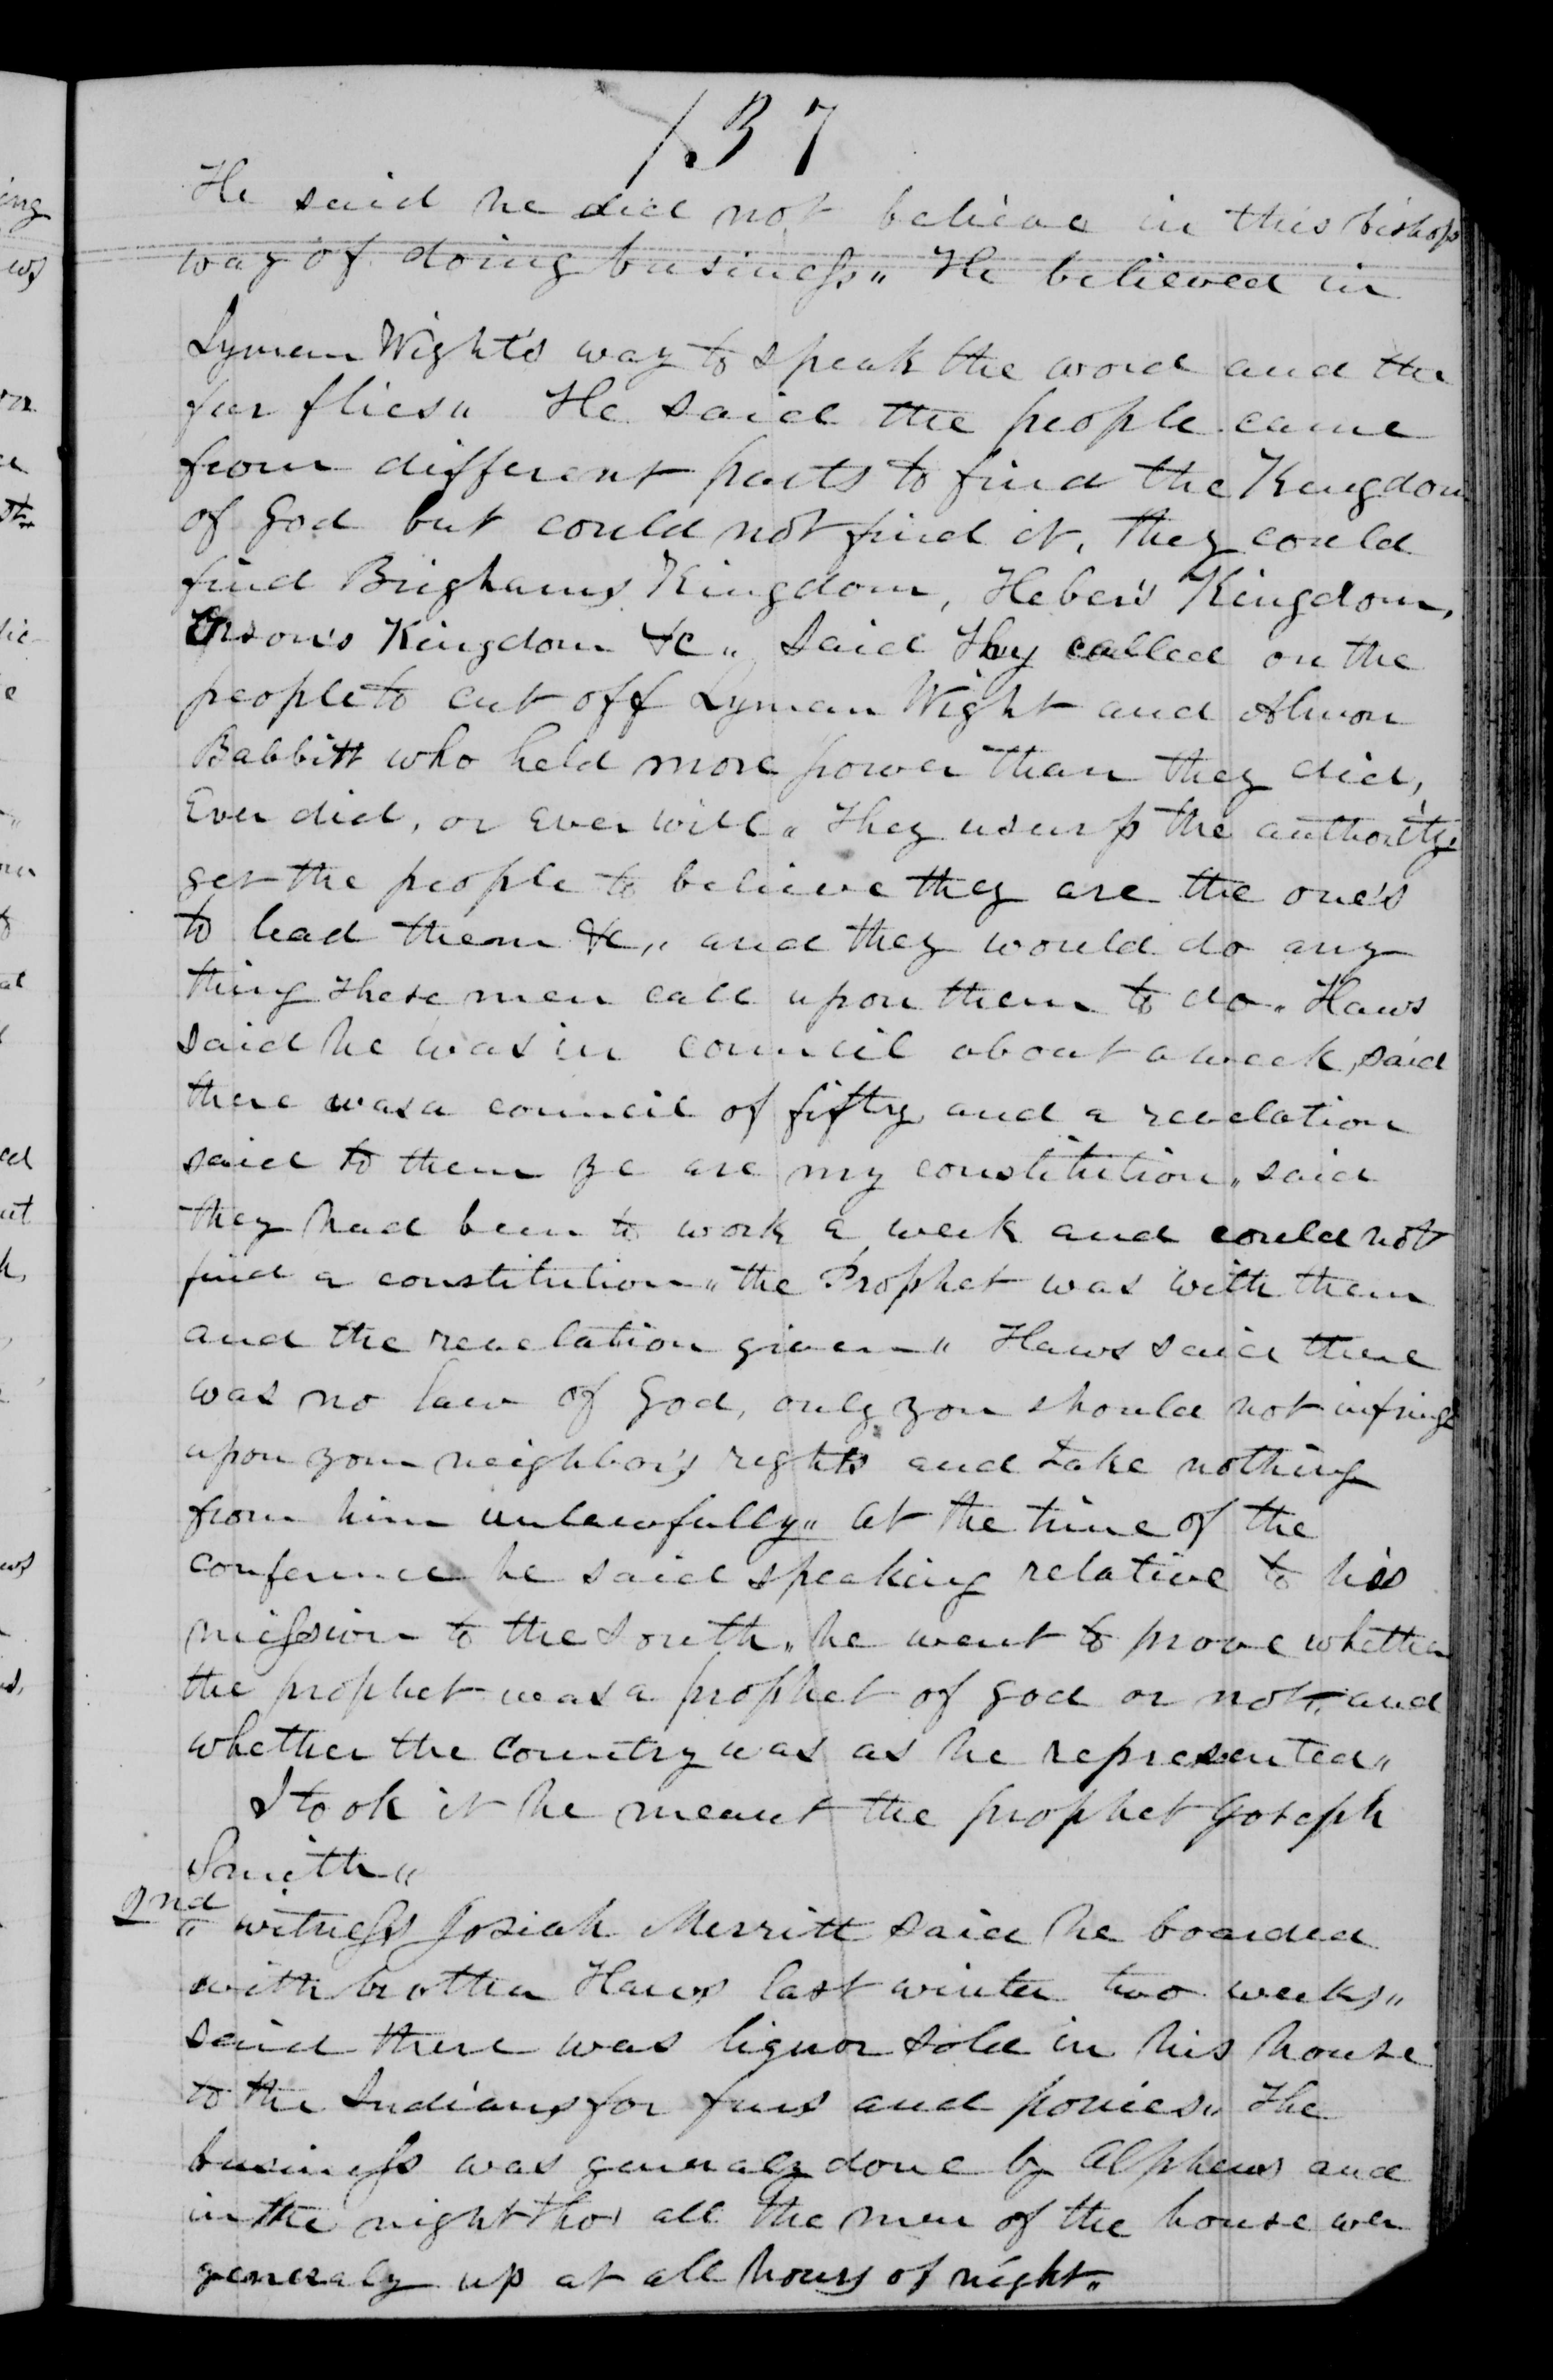 137
He said he did not believe in this bishops
way of doing business„ He believed in
Lyman Wight's way to speak the word and the
fur flies„ He said the people came
from different parts to find the Kingdom
of God but could not find it, they could
find Brighams Kingdom, Heber's Kingdom,
Orson's Kingdom &c„ Said they called on the
people to cut off Lyman Wight and Almon
Babbitt who held more power than they did,
Ever did, or Ever will„ They usurp the authority,
get the people to believe they are the one's
to lead them &c„ and they would do any
thing these men call upon them to do„ Haws
said he was in council about a week, said
there was a council of fifty and a revelation
said to them ye are my constitution„ said
they had been to work a week and could not
find a constitution„ the Prophet was with them
and the revelation given„ Haws said there
was no law of God, only you should not infringe
upon your neighbor's rights and take nothing
from him unlawfully„ At the time of the
conference he said speaking relative to his
mission to the South„ he went to prove whether
the prophet was a prophet of god or not, and
whether the country was as he represented„
I took it he meant the prophet Joseph
Smith„
2nd „ witness Josiah Merritt said he boarded
with brother Haws last winter two weeks„
said there was liquor sold in his house
to the Indians for furs and ponies„ The
business was generaly done by Alpheus and
in the night tho' all the men of the house wer
generaly up at all hours of night„